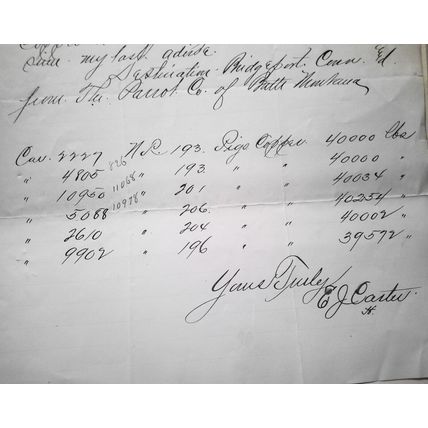 since my last advice.
Destination Bridgeport. Conn. Ed.
from The Parrot Co. of Butte Montana
Car. 2227 N.P. 193. Pigs Copper 40000 lbs
" 4805 826 " 193. " " 40000 "
" 10950 11068 " 201 " " 40034 "
" 5088 10978 " 206. " " 40254 "
" 2610 " 204 " " 40002 "
" 9902 " 196 " " 39572 "
Yours Truly
E J Carter